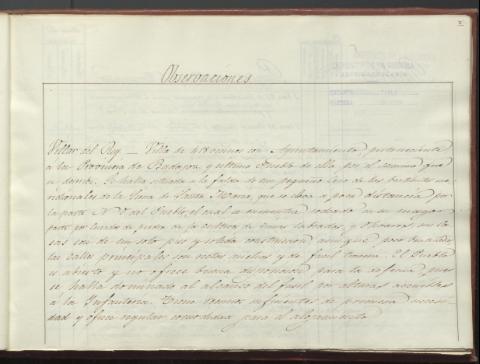 Observaciones
Villar del Rey — Villa de 418 vecinos con Ayuntamiento perteneciente
a la Provincia de Badajoz, y ultimo Pueblo de ella por el camino que
se describe. Se halla situada a la falda de un pequeño de las vertientes me-
ridionales de la Sierra de Santa Maria, que se eleva a poca distancia por
la parte N. O. del Pueblo, el cual se encuentra rodeado en su mayor
parte por cercados de piedra en el cultivo de tierras labradas, y olivares: sus ca-
sas son de un solo piso y solida construccion aunque poco
las calles principales son rectas anchas y de facil transito. El Pueblo
es abierto y no ofrece buena disposicion para la defensa pues
se halla dominado al alcance del fusil por alturas accesibles
a la Infanteria. Tiene recursos suficientes de primera necesi-
dad y ofrece regular comodidad para el alojamiento